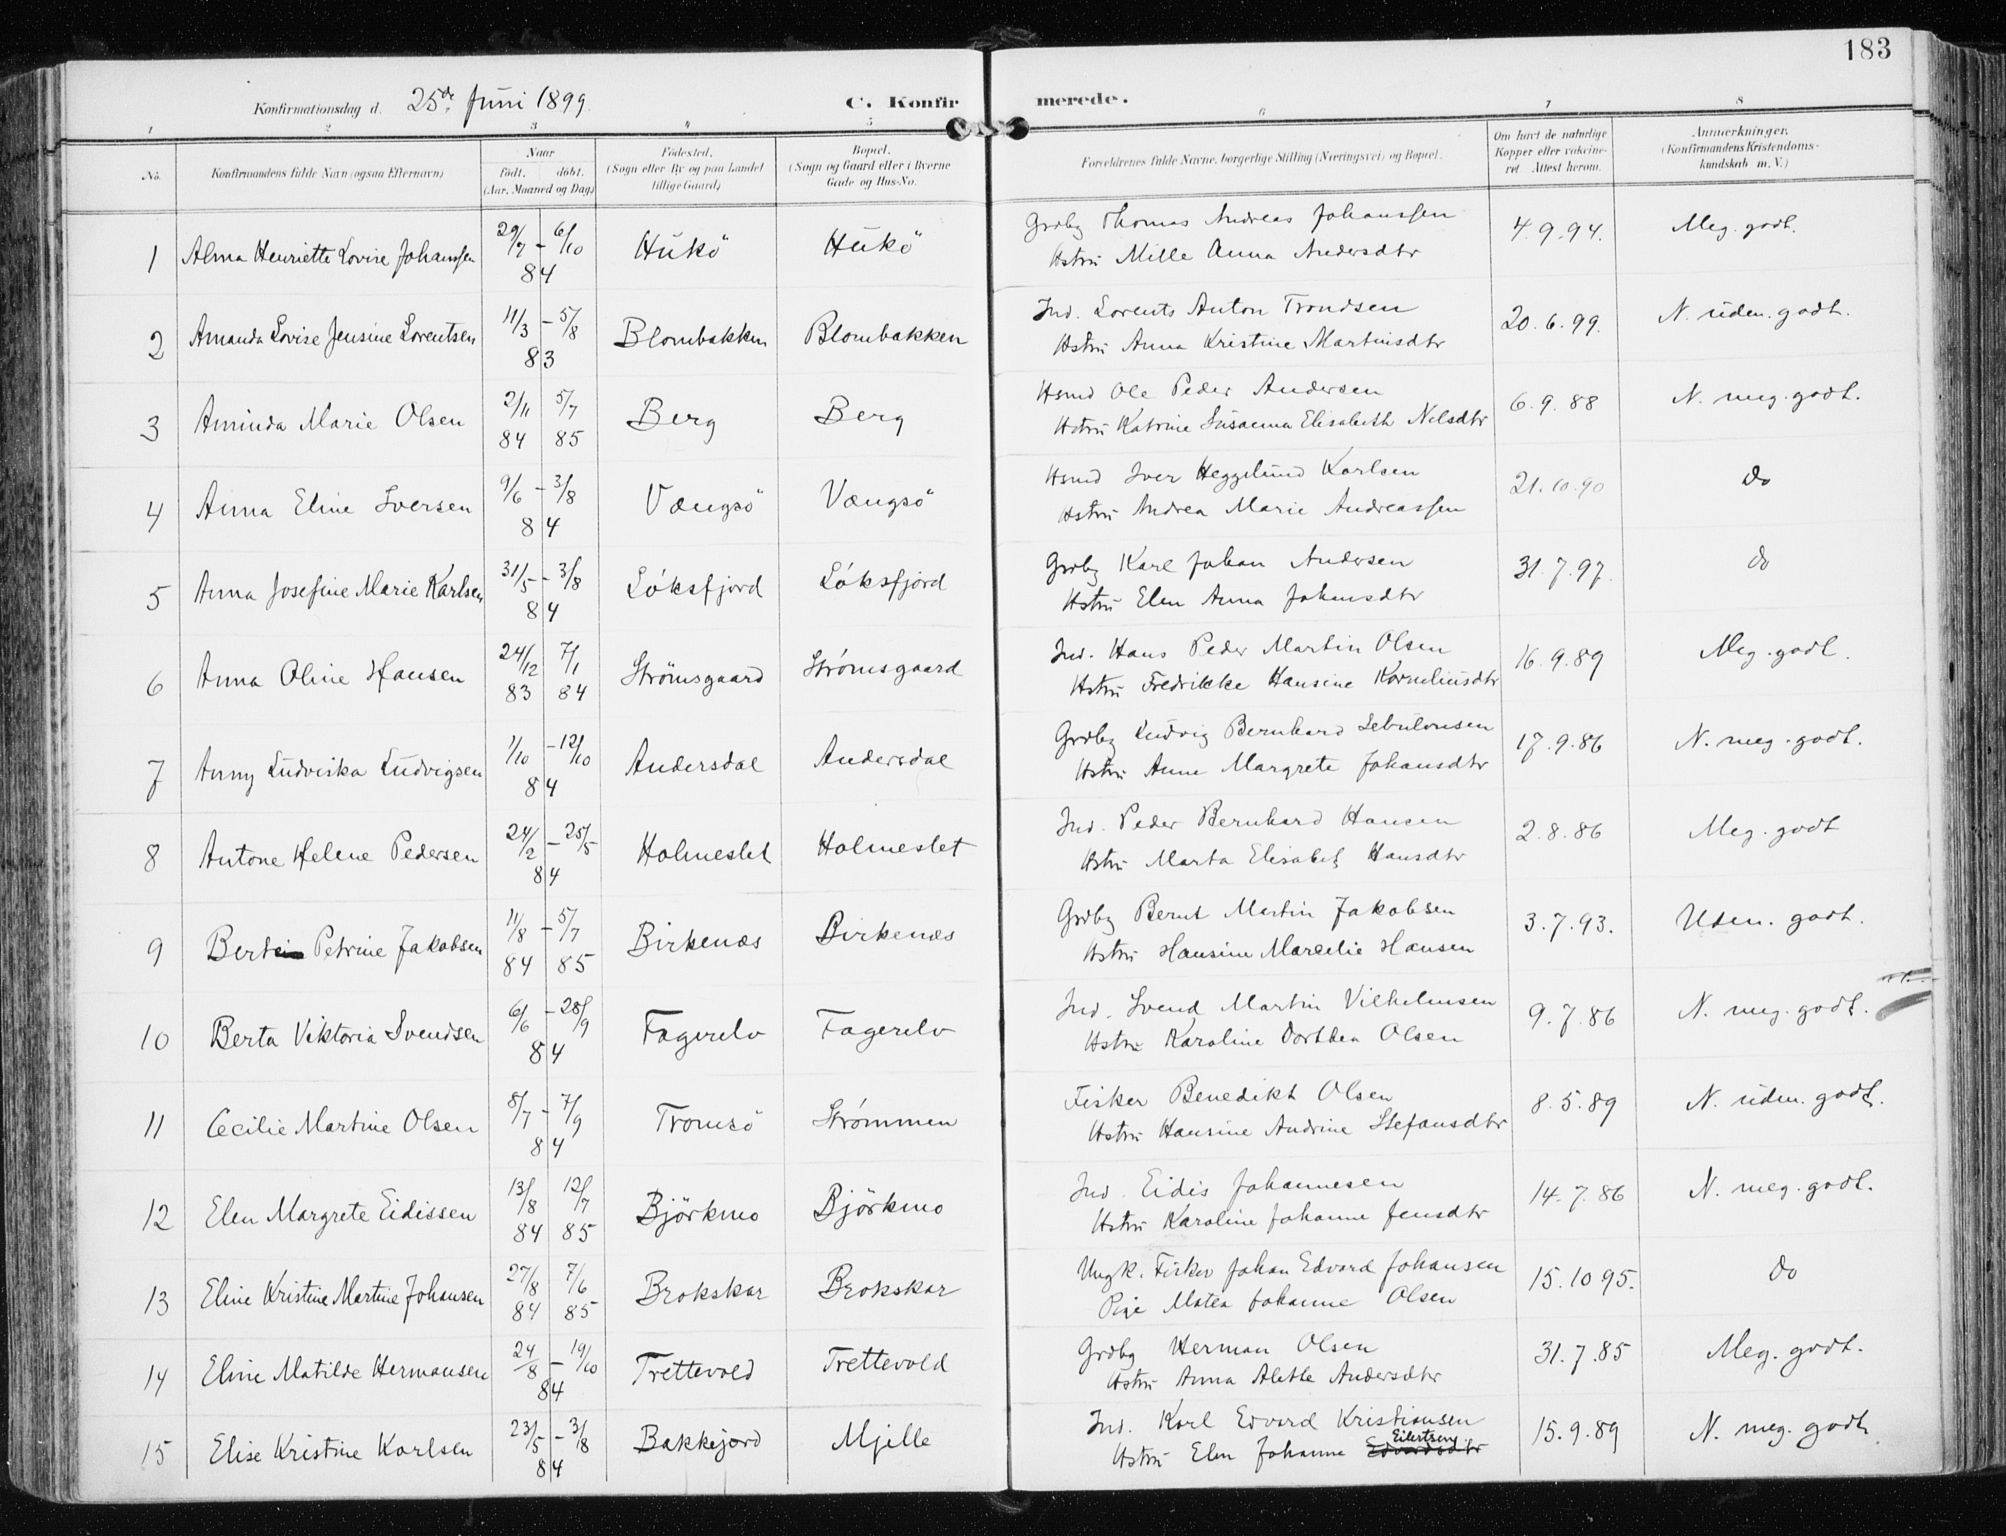 183
Konfirmationsdag d. 25de Juni 1899. C. Konfirmerede.
1 2 3 4 5 6 7 8
No. Konfirmandens fulde Navn (ogsaa Efternavn) Naar født. døbt. (Aar, Maaned og Dag) Fødested. (Sogn eller By og paa Landet tillige Gaard) Bopæl. (Sogn og Gaard eller i Byerne Gade og Hus-No. Forældrenes fulde Navne, borgerlige Stilling (Næringsvei) og Bopæl. Om havt de naturlige Kopper eller vakcineret. Attest herom. Anmerkninger. (Konfirmandens Kristendomskundskab m. V.)
1 Alma Henriette Lovise Johanssen 29/7 – 6/10 84 Hükö Hükö Grdbg Thomas Andreas Johanssen 4.9.94. Meg. godt.
Hstrü Mille Anna Andersdtr
2 Amanda Lovise Jensine Lorentsen 11/3 – 5/8 83 Blombakken Blombakken Ind. Lorents Anton Trondsen 20.6.99. N. üden. godt.
Hstrü Anna Kristine Martinsdtr
3 Aminda Marie Olsen 2/11 84 5/7 85 Berg Berg Hsmd Ole Peder Andersen 6.9.88 N. meg. godt.
Hstrü Katrine Susanna Elisabeth Nilsdtr
4 Anna Eline Iversen 9/6 – 3/8 84 Vængsö Vængsö Hsmd Iver Heggelund Karlsen 21.10.90 Do
Hstrü Andrea Marie Andreassen
5 Anna Josefine Marie Karlsen 31/5 – 3/8 84 Löksfjord Löksfjord Grdbg Karl Johan Andersen 31.7.97. Do
Hstrü Elen Anna Johansdtr
6 Anna Oline Hansen 24/12 83 7/1 84 Strömsgaard Strömsgaard Ind. Hans Peder Martin Olsen 16.9.89 Meg. godt.
Hstrü Fredrikke Hansine Korneliusdtr
7 Anny Ludviska Ludvigsen 1/10 – 12/10 84 Andersdal Andersdal Grdbg Ludvig Bernhard Sebulonsen 17.9.86 N. meg. godt.
Hstrü Anne Margrete Johansdtr
8 Antone Helene Pedersen 24/2 – 25/5 84 Holmeslet Holmeslet Ind. Peder Bernhard Hansen 2.8.86 Meg. godt
Hstrü Marta Elisabet Hansdtr
9 Petrine Jakobsen 11/8 84 – 5/7 85 Birkenæs Birkenæs Grdbg Bernt Martin Jakobsen 3.7.93. Uden. godt.
Hstrü Hansine Marcelie Hansen
10 Berta Viktoria Svendsen 6/6 – 28/9 84 Fagerelv Fagerelv Ind. Svend Martin Vilhelmsen 9.7.86 N. meg. godt.
Hstrü Karoline Dorthea Olsen
11 Cecilie Martine Olsen 8/7 – 7/9 84 Tromsö Strömmen Fisker Benedikt Olsen 8.5.89 N. üden. godt.
Hstrü Hansine Andrine Stefansdtr
12 Elen Margrete Eidissen 13/8 84 12/7 85 Björkmo Björkmo Ind. Eidis Johannesen 14.7.86 N. meg. godt.
Hstrü Karoline Johanne Jensdtr
13 Eline Kristine Martine Johansen 27/8 84 7/6 85 Brokskar Brokskar Ungk. Fisker Johan Edvard Johansen 15.10 95. Do
Pige Matea Johanne Olsen
14 Eline Matilde Hermansen 24/8 – 19/10 84 Trettevold Trettevold Grdbg Herman Olsen 31.7.85 Meg. godt.
Hstrü Anna Alette Andersdtr
15 Elise Kristine Karlsen 23/5 – 3/8 84 Bakkejord Mjelle Ind. Karl Edvard Kristiansen 15.9.89 N. meg. godt.
Hstrü Elen Johanne Edvardsdtr Eilertsen